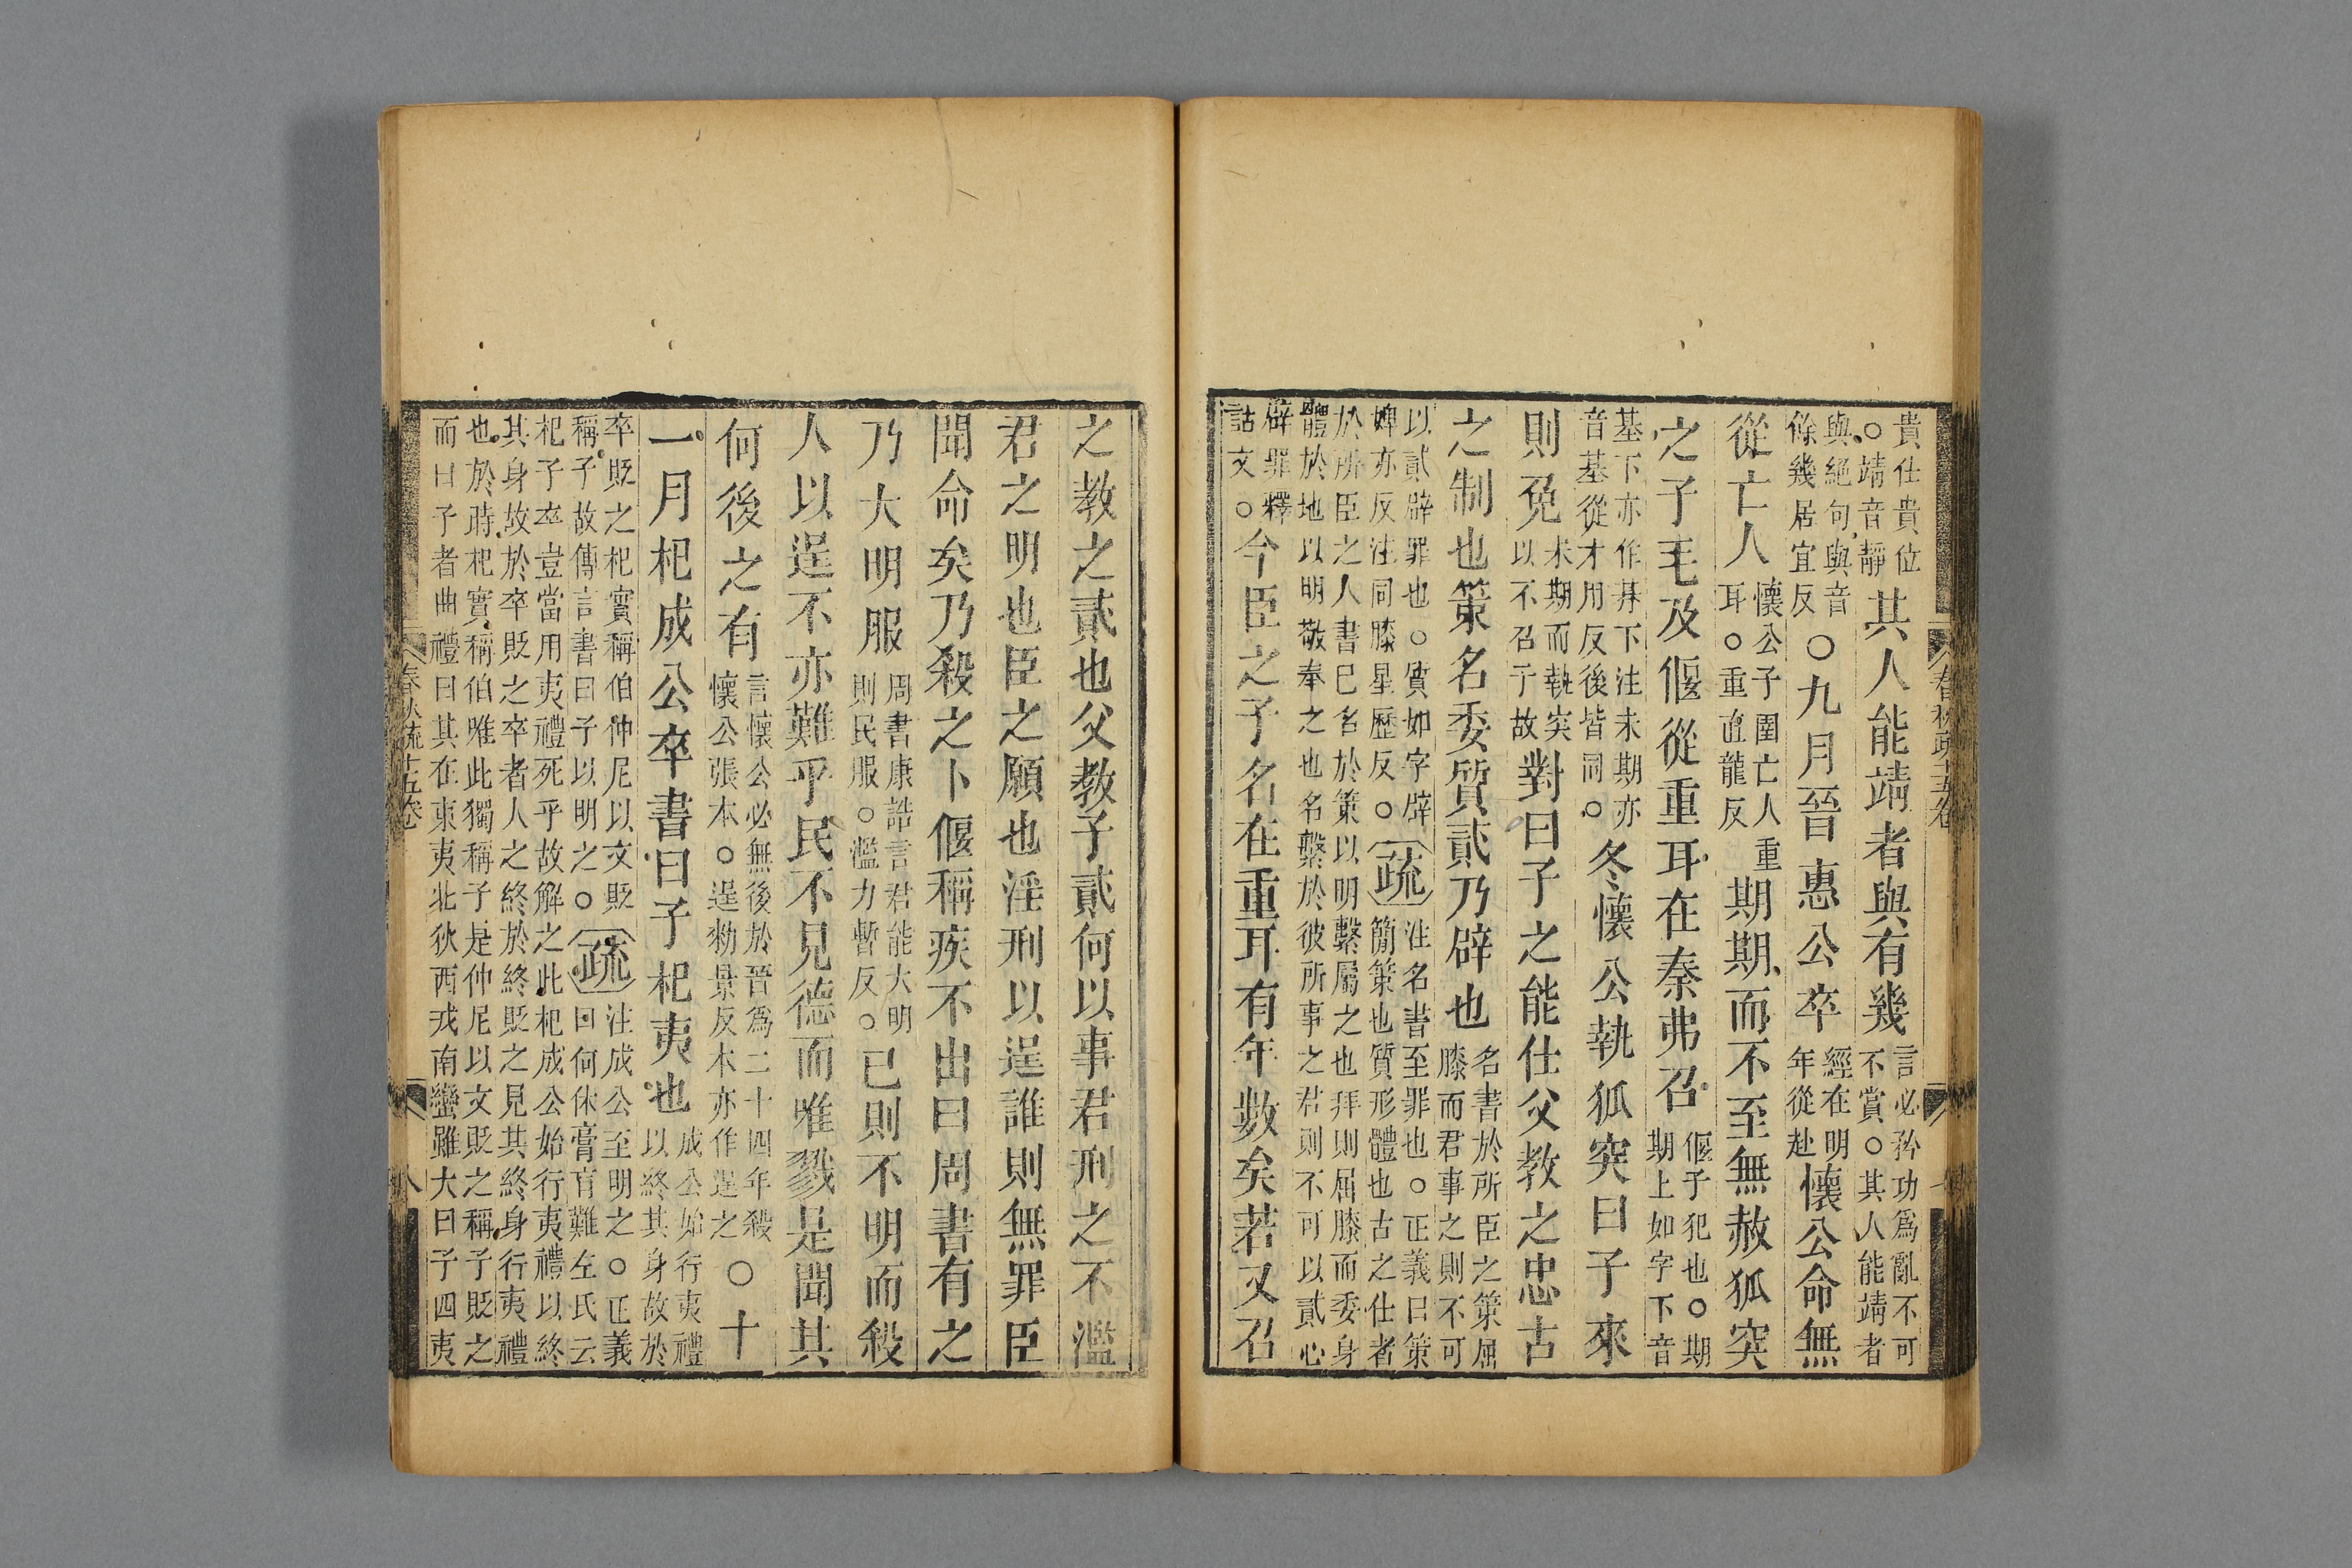 貴仕貴位
○靖音靜
其人能靖者與有幾
言必矜功爲亂不可
不賞○其人能靖者
與絕句與音
餘幾居宜反
○九月晉惠公卒
經在明
年從赴
懷公命無
從亡人
懷公子圉亡人重
耳○重直龍反
期期而不至無赦狐突
之子毛及偃從重耳在秦弗召
偃子犯也○期
期上如字下音
基下亦作朞下注未期亦
音基從才用反後皆同○
冬懷公執狐突曰子來
則免
未期而執突
以不召子故
對曰子之能仕父教之忠古
之制也策名委質貳乃辟也
名書於所臣之策屈
膝而君事之則不可
以貳辟罪也○質如字辟
婢亦反注同膝星歷反○
疏
注名書至罪也○正義曰策
簡策也質形體也古之仕者
於所臣之人書已名於策以明繫屬之也拜則屈膝而委身
體於地以明敬奉之也名繫於彼所事之君則不可以貳心
辟罪釋
詁文○
今臣之子名在重耳有年數矣若又召
之教之貳也父教子貳何以事君刑之不濫
君之明也臣之願也淫刑以逞誰則無罪臣
聞命矣乃殺之卜偃稱疾不出曰周書有之
乃大明服
周書康誥言君能大明
則民服○濫力暫反○
己則不明而殺
人以逞不亦難乎民不見德而唯戮是聞其
何後之有
言懷公必無後於晉爲二十四年殺
懷公張本○逞勑景反本亦作逞之
○十
一月杞成公卒書曰子杞夷也
成公始行夷禮
以終其身故於
卒貶之杞實稱伯仲尼以文貶
稱子故傳言書曰子以明之○
疏
注成公至明之○正義
曰何休膏肓難左氏云
杞子卒豈當用夷禮死乎故解之此杞成公始行夷禮以終
其身故於卒貶之卒者人之終於終貶之見其終身行夷禮
也於時杞實稱伯唯此獨稱子是仲尼以文貶之稱子貶之
而曰子者曲禮曰其在東夷北狄西戎南蠻雖大曰子四夷
春秋疏十五卷
八